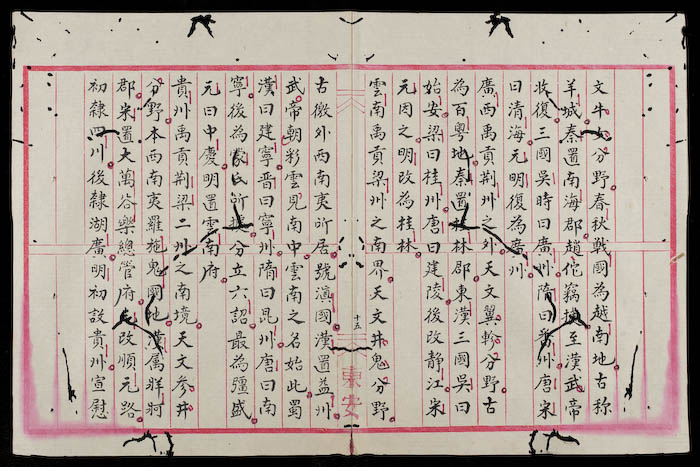 文牛女分野春秋戰國為越南地古稱
羊城秦置南海郡趙佗竊據至漢武帝
收復三國吳時曰廣州隋曰番州唐宋
曰清海元明復為廣州
廣西禹貢荆州之外天文翼軫分野古
為百粵地秦置桂林郡東漢三國吳曰
始安梁曰桂州唐曰建陵後改靜江宋
元因之明改為桂林
雲南禹貢梁州之南界天文井鬼分野
十五
東安
古徼外西南夷所居號滇國漢置益州
武帝朝彩雲見南中雲南之名始此蜀
漢曰建寧晉曰寧州隋曰昆州唐曰南
寧後為蒙氏所據分立六詔最為彊盛
元曰中慶明置雲南府
貴州禹貢荆梁二州之南境天文參井
分野本西南夷羅施鬼國地漢屬牂牁
郡宋置大萬谷樂總管府元改順元路
初隸四川後隸湖廣明初設貴州宣慰